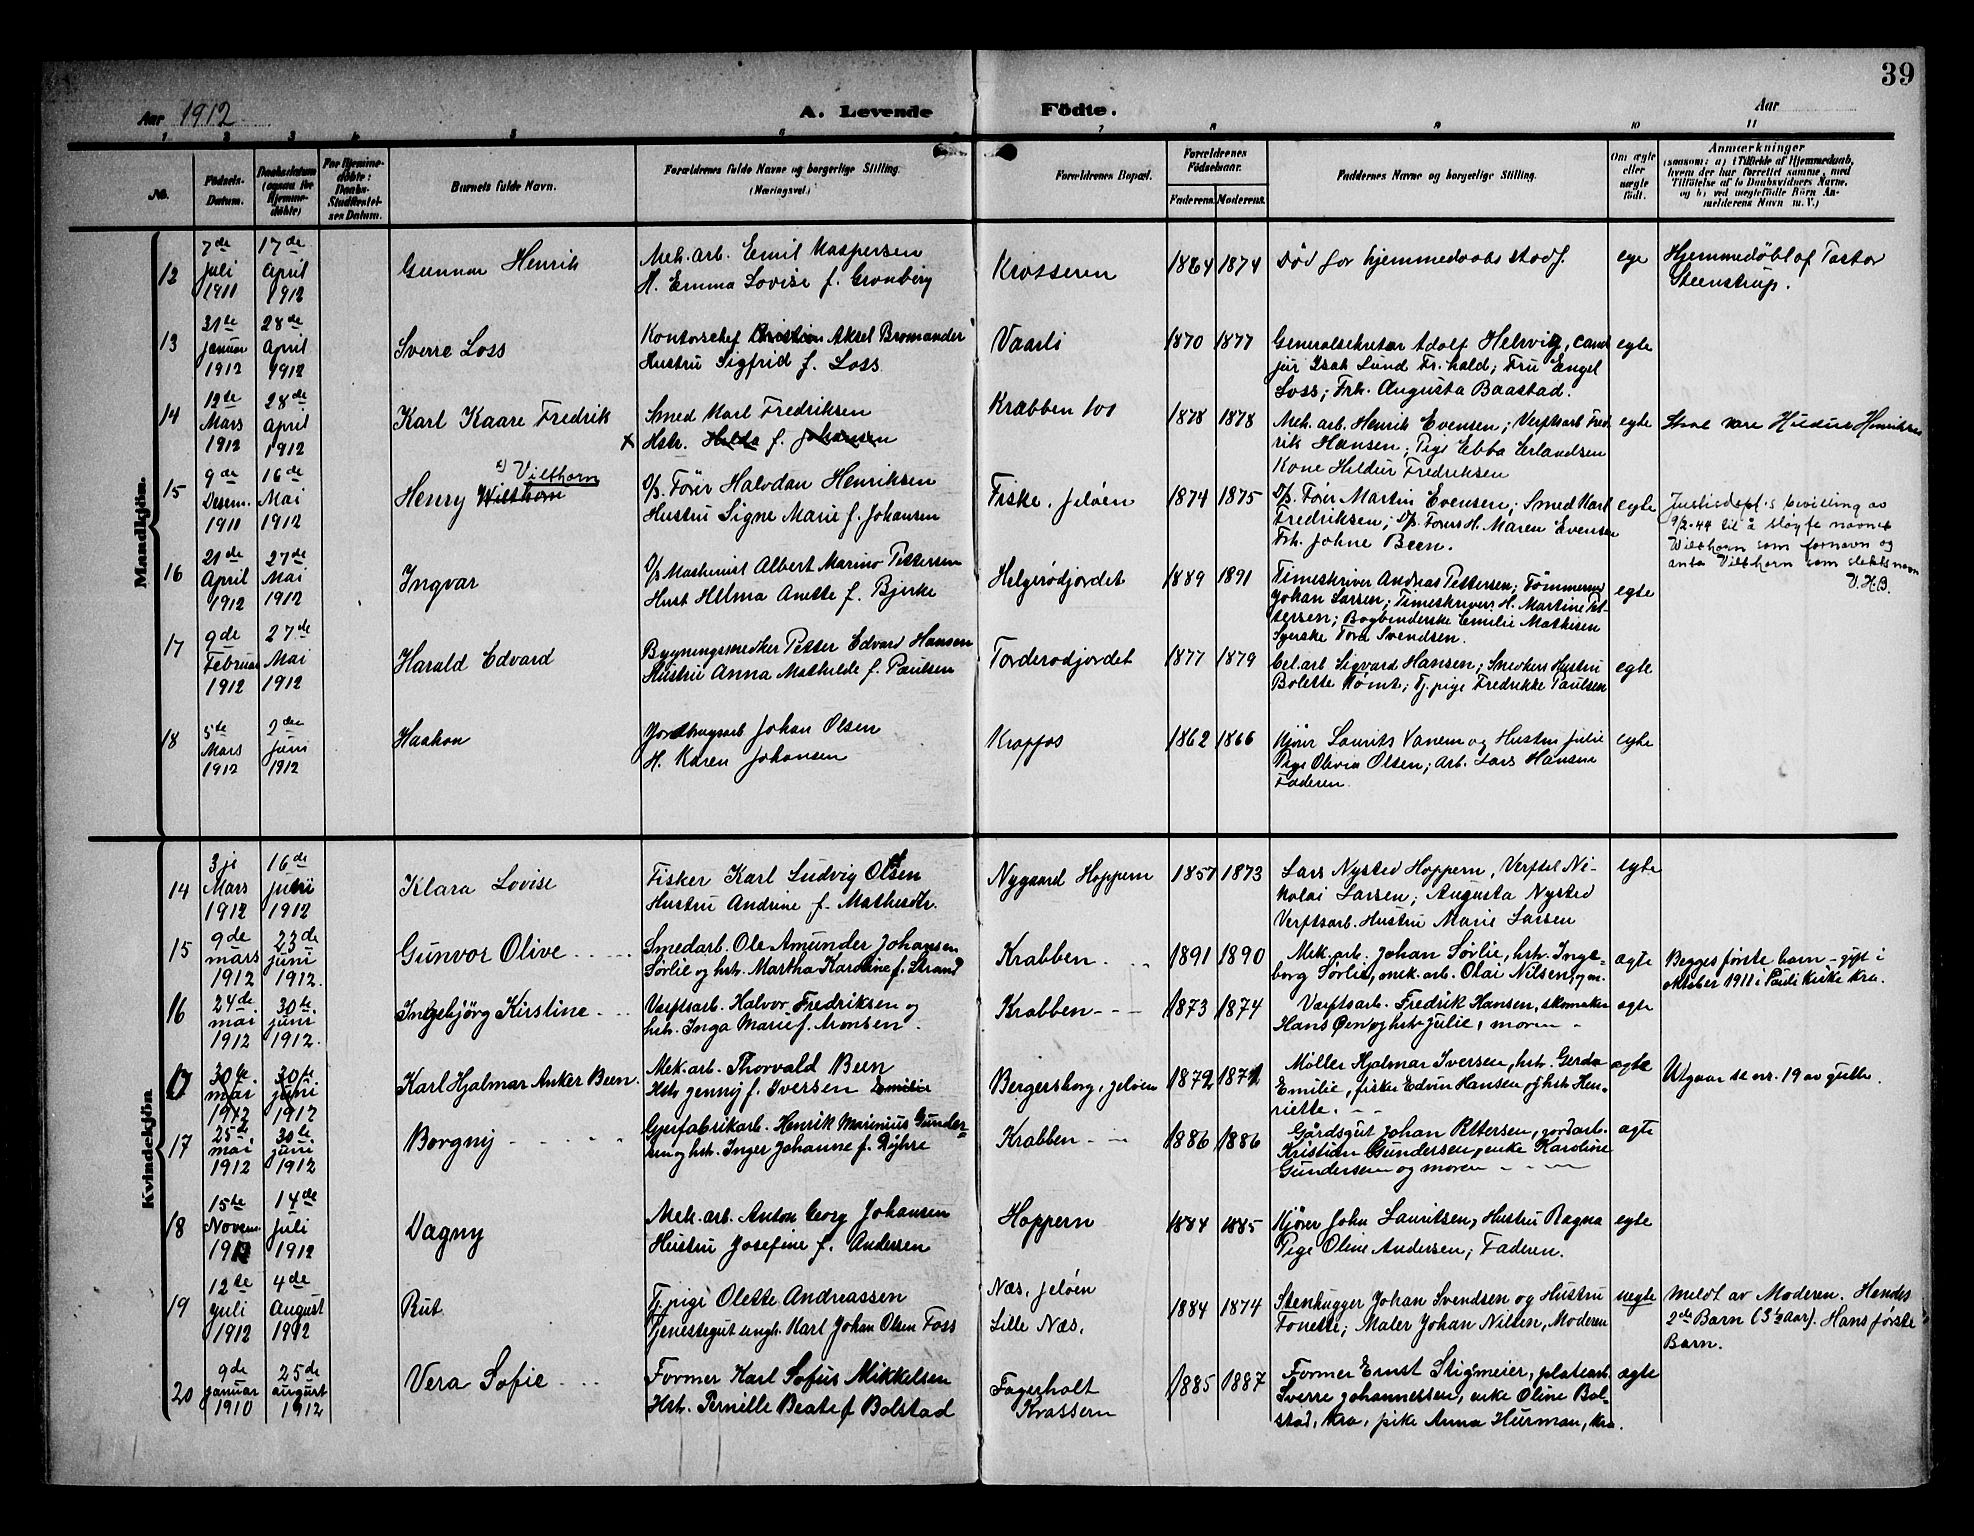 39
Aar 1912
A. Levende Födte.
Aar
1 2 3 4 5 6 7 8 9 10 11
No.
Födsels-Datum.
Daabsdatum (ogsaa for Hjemme-döbte)
For Hjemme-döbte: Daabs-Stadfæstel-ses Datum.
Barnets fulde Navn.
Forældrenes fulde Navne og borgerlige Stilling. (Haringsvei.)
Forældrenes Bopæl.
Forældrenes Födselsaar.
Faderens. Moderens.
Faddernes Navne og borgerlige Stilling.
Om ægte eller uægte födt.
Anmærkninger
(saasom: a) i Tilfælde af Hjemmedaab,
hvem der har forrettet samme, med
Tilföielse af to Daabsvidners Navne.
og b) ved uægtefödte Börn An-
melderens Navn m. V.)
Mandkjön.
12
7de Juli 1911
17de April 1912
Gunnar Henrik
Mek. arb. Emil Kaspersen
H. Emma Lovise f. Gronberg
Krosseren
1864 1874
Død før hjemmedaabs stadf.
ege
Hjemmedøbt af Pastor
Steenstrup.
13
31te Januar 1912
28de April 1912
Sverre Loss
Kontorchef Kristian Aksel Bromander
Hustru Sigfrid f. Loss
Vaarli
1870 1877
Generalsekretær Adolf Helvig, cand
jur Isak Lund Fr.hald; Fru Engel
Loss; Frk. Augusta Baastad.
egte
14
12te Mars 1912
28de April 1912
Karl Kaare Fredrik
Smed Karl Fredriksen
x Hstr. Hilda f. Johansen
Krabben
1878 1878
Mek. arb. Henrik Evensen; Verftsarb Fred
rik Hansen; Pige Ebba Erlandsen
Kone Hildur Fredriksen
egte
Skal være Hildur Henriksen
15
9de Desem. 1911
16de Mai 1912
x) Vilthorn
Henry Wilthorn
D/s. Fører Halvdan Henriksen
Hustru Signe Marie f. Johansen
Fiske, Jeløen
1874 1875
D/s. Fører Martin Evensen; Smed Karl
Fredriksen; D/s. Førers H. Maren Evensen
Frk. Johne Been.
egte
Justisdept.s bevilling av
9/2-44 til å sløyfe navnet
Wilthorn som fornavn og
anta Vilthorn som slektsnavn
V.H.B.
16
21de April 1912
27de Mai 1912
Ingvar
D/s Maskinist Albert Marino Pettersen
Hust Hilma Anette f. Bjerke
Helgerødjordet
1889 1891
Timeskriver Andreas Pettersen; Tømmerm
Johan Larsen; Timeskrivers H. Martine Pet
tersen; Bogbinderske Emilie Mathisen
Syerske Tora Svendsen.
egte
17
9de Februar 1912
27de Mai 1912
Harald Edvard
Bygningssnedker Petter Edvard Hansen
Hustru Anna Mathilde f. Paulsen
Torderødjordet
1877 1879
Cel.arb Sigvard Hansen; Snedkers Hustru
Bolette Rømt; Tj. pige Fredrikke Paulsen
egte
18
5te Mars 1912
2den Juni 1912
Haakon
Jordbrugsarb Johan Olsen
H. Karen Johansen
Krapfos
1862 1866
Kjører Laurits Vanem og Hustru Julie
Pige Olivia Olsen; Arb. Lars Hansen
Faderen.
egte
Kvindekjön
14
3je Mars 1912
16de Juni 1912
Klara Lovise
Fisker Karl Ludvig Olsen
Hustru Andrine f. Mathisdtr.
Nygaard Hoppern
1857 1873
Lars Nysted Hoppern, Verftsl Ni-
kolai Larsen; Augusta Nysted
Verftsarb. Hustru Marie Larsen
egte
15
9de mars 1912
23de juni 1912.
Gunvor Olive
Smedarb. Ole Amunder Johansen
Sørlie og hstr. Martha Karoline f. Strand
Krabben
1891 1890
Mek. arb. Johan Sørlie, hstr. Inge-
borg Sørlie, mek. arb. Olai Nilsen, og m.
ægte
Begges første barn - gift i
oktober 1911 i Pauls kirke Kra.
16
24de mai 1912
30te juni 1912.
Ingebjörg Kirstine
Værftsarb. Halvor Fredriksen og
hstr. Inga Marie f. Aronsen.
Krabben
1873 1874
Værftsarb. Fredrik Hansen, skomaker
Hans Øen og hstr Julie, moren
ægte
17
30te mai 1912
30te juni 1912
Karl Hjalmar Anker Been.
Mek. arb. Thorvald Been
Hstr Jenny f. Iversen Emilie
Bergersborg, jeløen
1872 1871
Møller Hjalmar Iversen, hstr. Gerda
Emilie, fisker Edvin Hansen, og hstr Hen-
riette.
ægte
Utgaar se nr. 19 av gutter.
17
25de mai 1912
30te juni 1912
Borgny
Gjærfabrikarb. Henrik Marinius Gunder-
sen og hstr. Inger Johanne f. Dyhre
Krabben
1886 1886
Gårdsgut Johan Pettersen, jordarb.
Kristian Gundersen, enke Karoline
Gundersen og moren
ægte
18
15te Novem. 1911
14de Juli 1912
Dagny
Mek. arb. Anton Georg Johansen
Hustru Josefine f. Andersen
Hoppern
1884 1885
Kjører John Lauritsen, Hustru Ragna
Pige Oline Andersen; Faderen.
egte
19
12te Juli 1912
4de August 1912
Rut
Tj. pige Olette Andreassen
Tjenestegut ungk. Karl Johan Olsen Foss
Næs, Jeløen
Lille Næs,
1884 1874
Stenhugger Johan Svendsen og Hustru
Tonette; Maler Johan Nilsen, Moderen
uegte
Meldt av Moderen. Hendes
2det Barn (3½ aar). Hans første
Barn.
20
9de januar 1910
25de august 1912
Vera Sofie
Former Karl Sofus Mikkelsen
Hstr. Pernille Beate f Bolstad
Fagerholt
Krassern
1885 1887
Former Ernst Stigmeier, platearb.
Sverre Johannessen, enke Oline Bol-
stad, Kra, pike Anna Hurman, Kra.
ægte